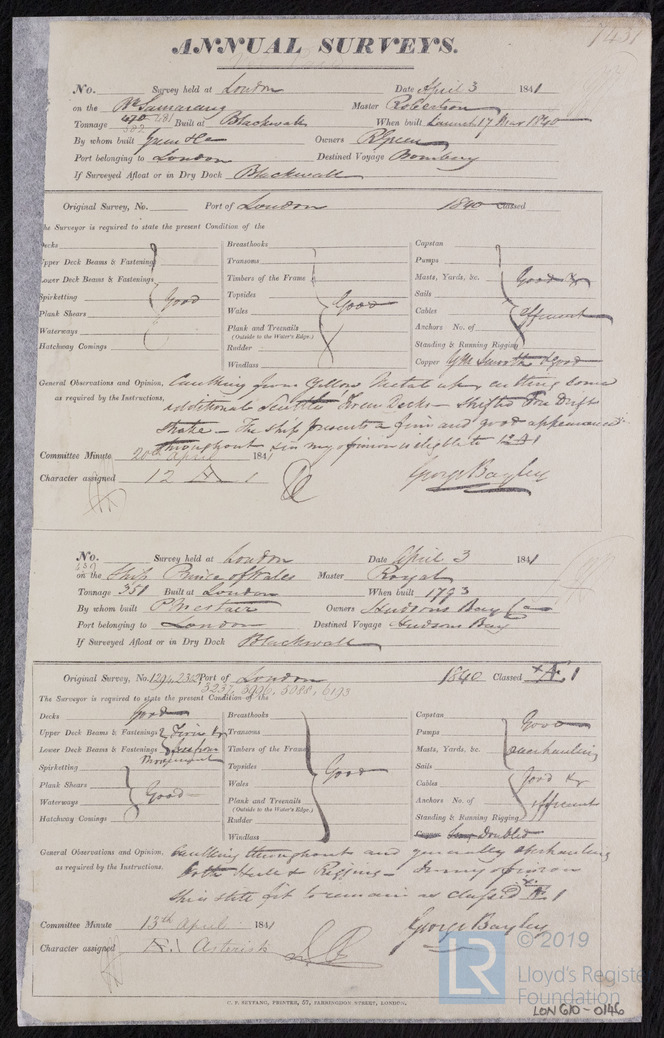 1451
ANNUAL SURVEYS.
No. Survey held at London Date April 3 1841
on the Bk Samarang Master Robertson
Tonnage 470 Built at Blackwall When built Launch 17 Mar 1840
By whom built Green & Co Owners R Green
Port belonging to London Destined Voyage Bombay
If Surveyed Afloat or in Dry Dock Blackwall
Original Survey, No. Port of London 1840 Classed
The Surveyor is required to state the present Condition of the
Decks
Upper Deck Beams & Fastenings
Lower Deck Beams & Fastenings
Spirketting Good
Plank Shears
Waterways
Hatchway Comings
Breasthooks
Transoms
Timbers of the Frame
Topsides Good
Wales
Plank and Treenails
(Outside to the Water's Edge.)
Rudder
Windlass
Capstan
Pumps
Masts, Yards, &c. Good &
Sails
Cables efficient
Anchors No. of
Standing & Running Rigging
Copper Good
General Observations and Opinion, Caulking from Yellow Metal up, cutting some
as required by the Instructions, additional Scuttles Decks - shifted
The ship presents a firm and good appearance
throughout & in my opinion is eligible to 12 A 1
Committee Minute 20th April 1841
Character assigned 12 A 1 George Bayley
No. Survey held at London Date April 3 1841
on the Ship Prince of Wales Master Royal
Tonnage 351 Built at London When built 1793
By whom built P Mestaer Owners Hudsons Bay Co
Port belonging to London Destined Voyage Hudsons Bay
If Surveyed Afloat or in Dry Dock Blackwall
Original Survey, No. 1294, Port of London 1840 Classed *Æ 1
The Surveyor is required to state the present Condition of the
Decks Good
Upper Deck Beams & Fastenings Firm &
Lower Deck Beams & Fastenings free from
Movement
Spirketting
Plank Shears
Waterways Good
Hatchway Comings
Breasthooks
Transoms
Timbers of the Frame
Topsides Good
Wales
Plank and Treenails
(Outside to the Water's Edge.)
Rudder
Windlass
Capstan Good
Pumps
Masts, Yards, &c. overhauling
Sails
Cables Good &
Anchors No. of efficient
Standing & Running Rigging
Copper Doubled
General Observations and Opinion, Caulking throughout and generally overhauling
as required by the Instructions. both Hull & Rigging - In my opinion
she is still fit to remain as classed *Æ 1
Committee Minute 13th April 1841 George Bayley
Character assigned Æ.1 Asterisk
C. F. SEYFANG, PRINTER, 57, FARRINGDON STREET, LONDON.
LR © 2019
Lloyd's Register
Foundation
LON 610 - 0146